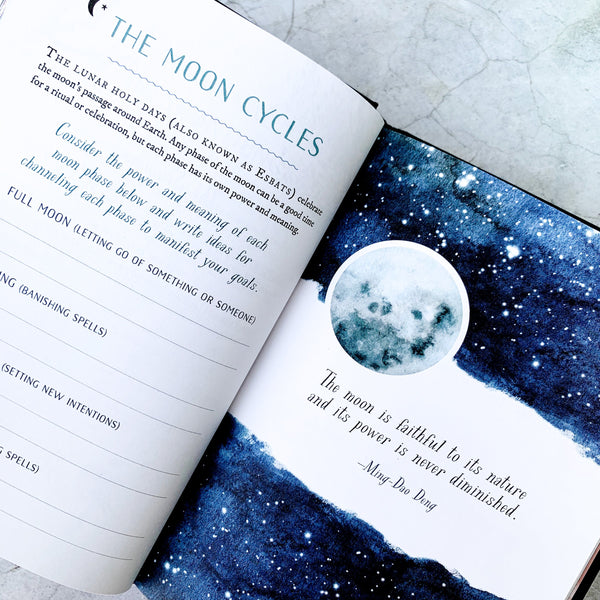 THE MOON CYCLES
THE LUNAR HOLY DAYS (ALSO KNOWN AS ESBATS) celebrate
the moon's passage around Earth. Any phase of the moon can be a good time
for a ritual or celebration, but each phase has its own power and meaning.
Consider the power and meaning of each
moon phase below and write ideas for
channeling each phase to manifest your goals.
FULL MOON (LETTING GO OF SOMETHING OR SOMEONE)
NG (BANISHING SPELLS)
(SETTING NEW INTENTIONS)
G SPELLS)
The moon is faithful to its nature
and its power is never diminished.
—Ming-Dao Deng